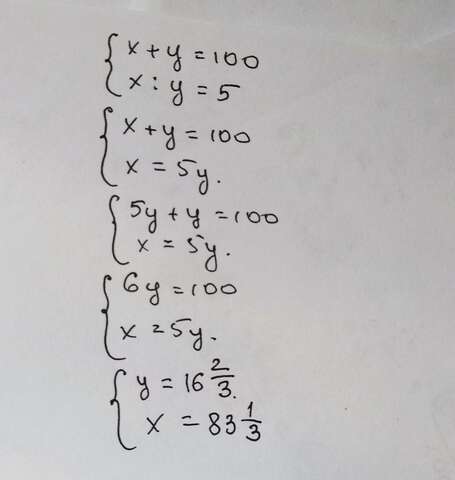 x + y = 100
x : y = 5
x + y = 100
x = 5y.
5y + y = 100
x = 5y.
6y = 100
x = 5y.
y = 16 2/3.
x = 83 1/3